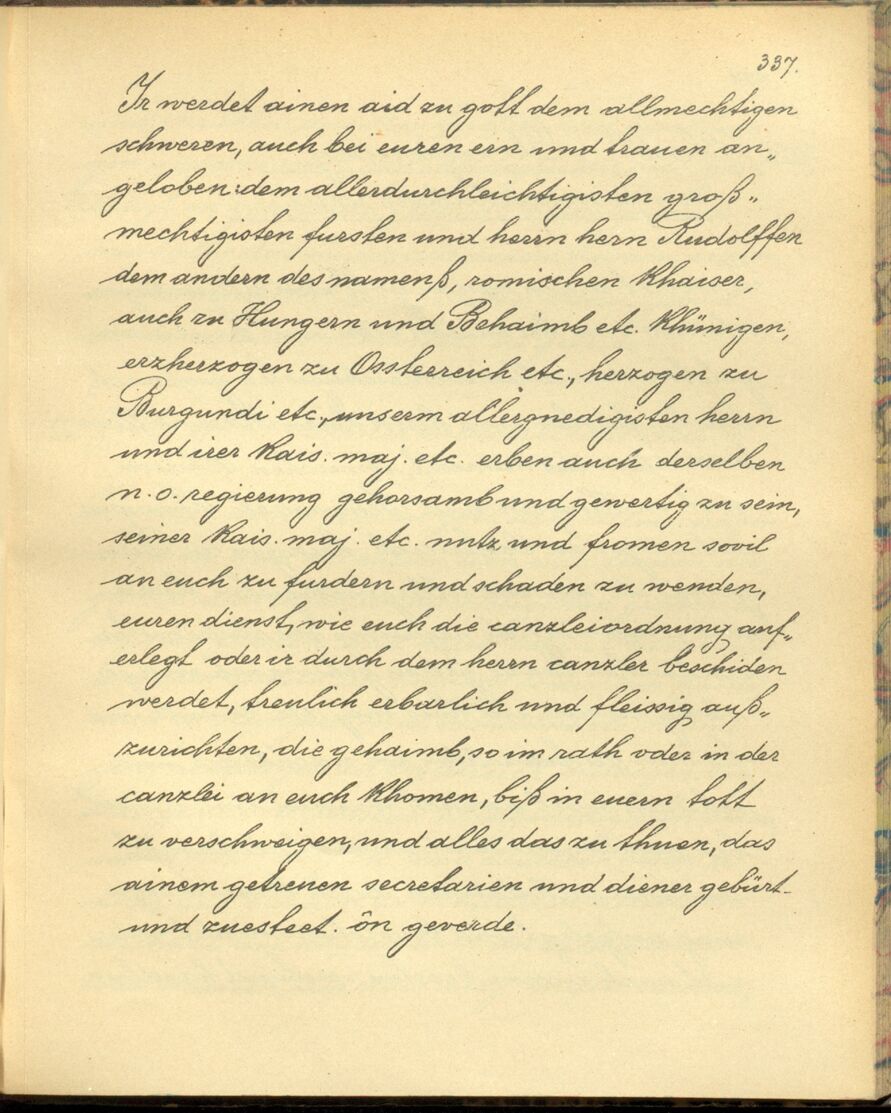 337.
Ir werdet ainen aid zu gott dem allmechtigen
schweren, auch bei euren ern und trauen an„
geloben: dem allerdurchleichtigisten groß„
mechtigisten fursten und herrn hern Rudolffen
dem andern des namenß, romischen Khaiser,
auch zu Hungern und Behaimb etc. Khünigen,
erzherzogen zu Ossterreich etc., herzogen zu
Burgundi etc., unserm allergnedigisten herrn
und irer kais. maj. etc. erben auch derselben
n. o. regierung gehorsamb und gewertig zu sein,
seiner kais. maj. etc. nutz und fromen sovil
an euch zu furdern und schaden zu wenden,
euren dienst, wie euch die canzleiordnung auf„
erlegt oder ir durch dem herrn canzler beschiden
werdet, treulich erbarlich und fleissig auß„
zurichten, die gehaimb, so im rath oder in der
canzlei an euch khomen, biß in euern tott
zu verschweigen, und alles das zu thuen, das
ainem getreuen secretarien und diener gebürt
und zuesteet. ôn geverde.